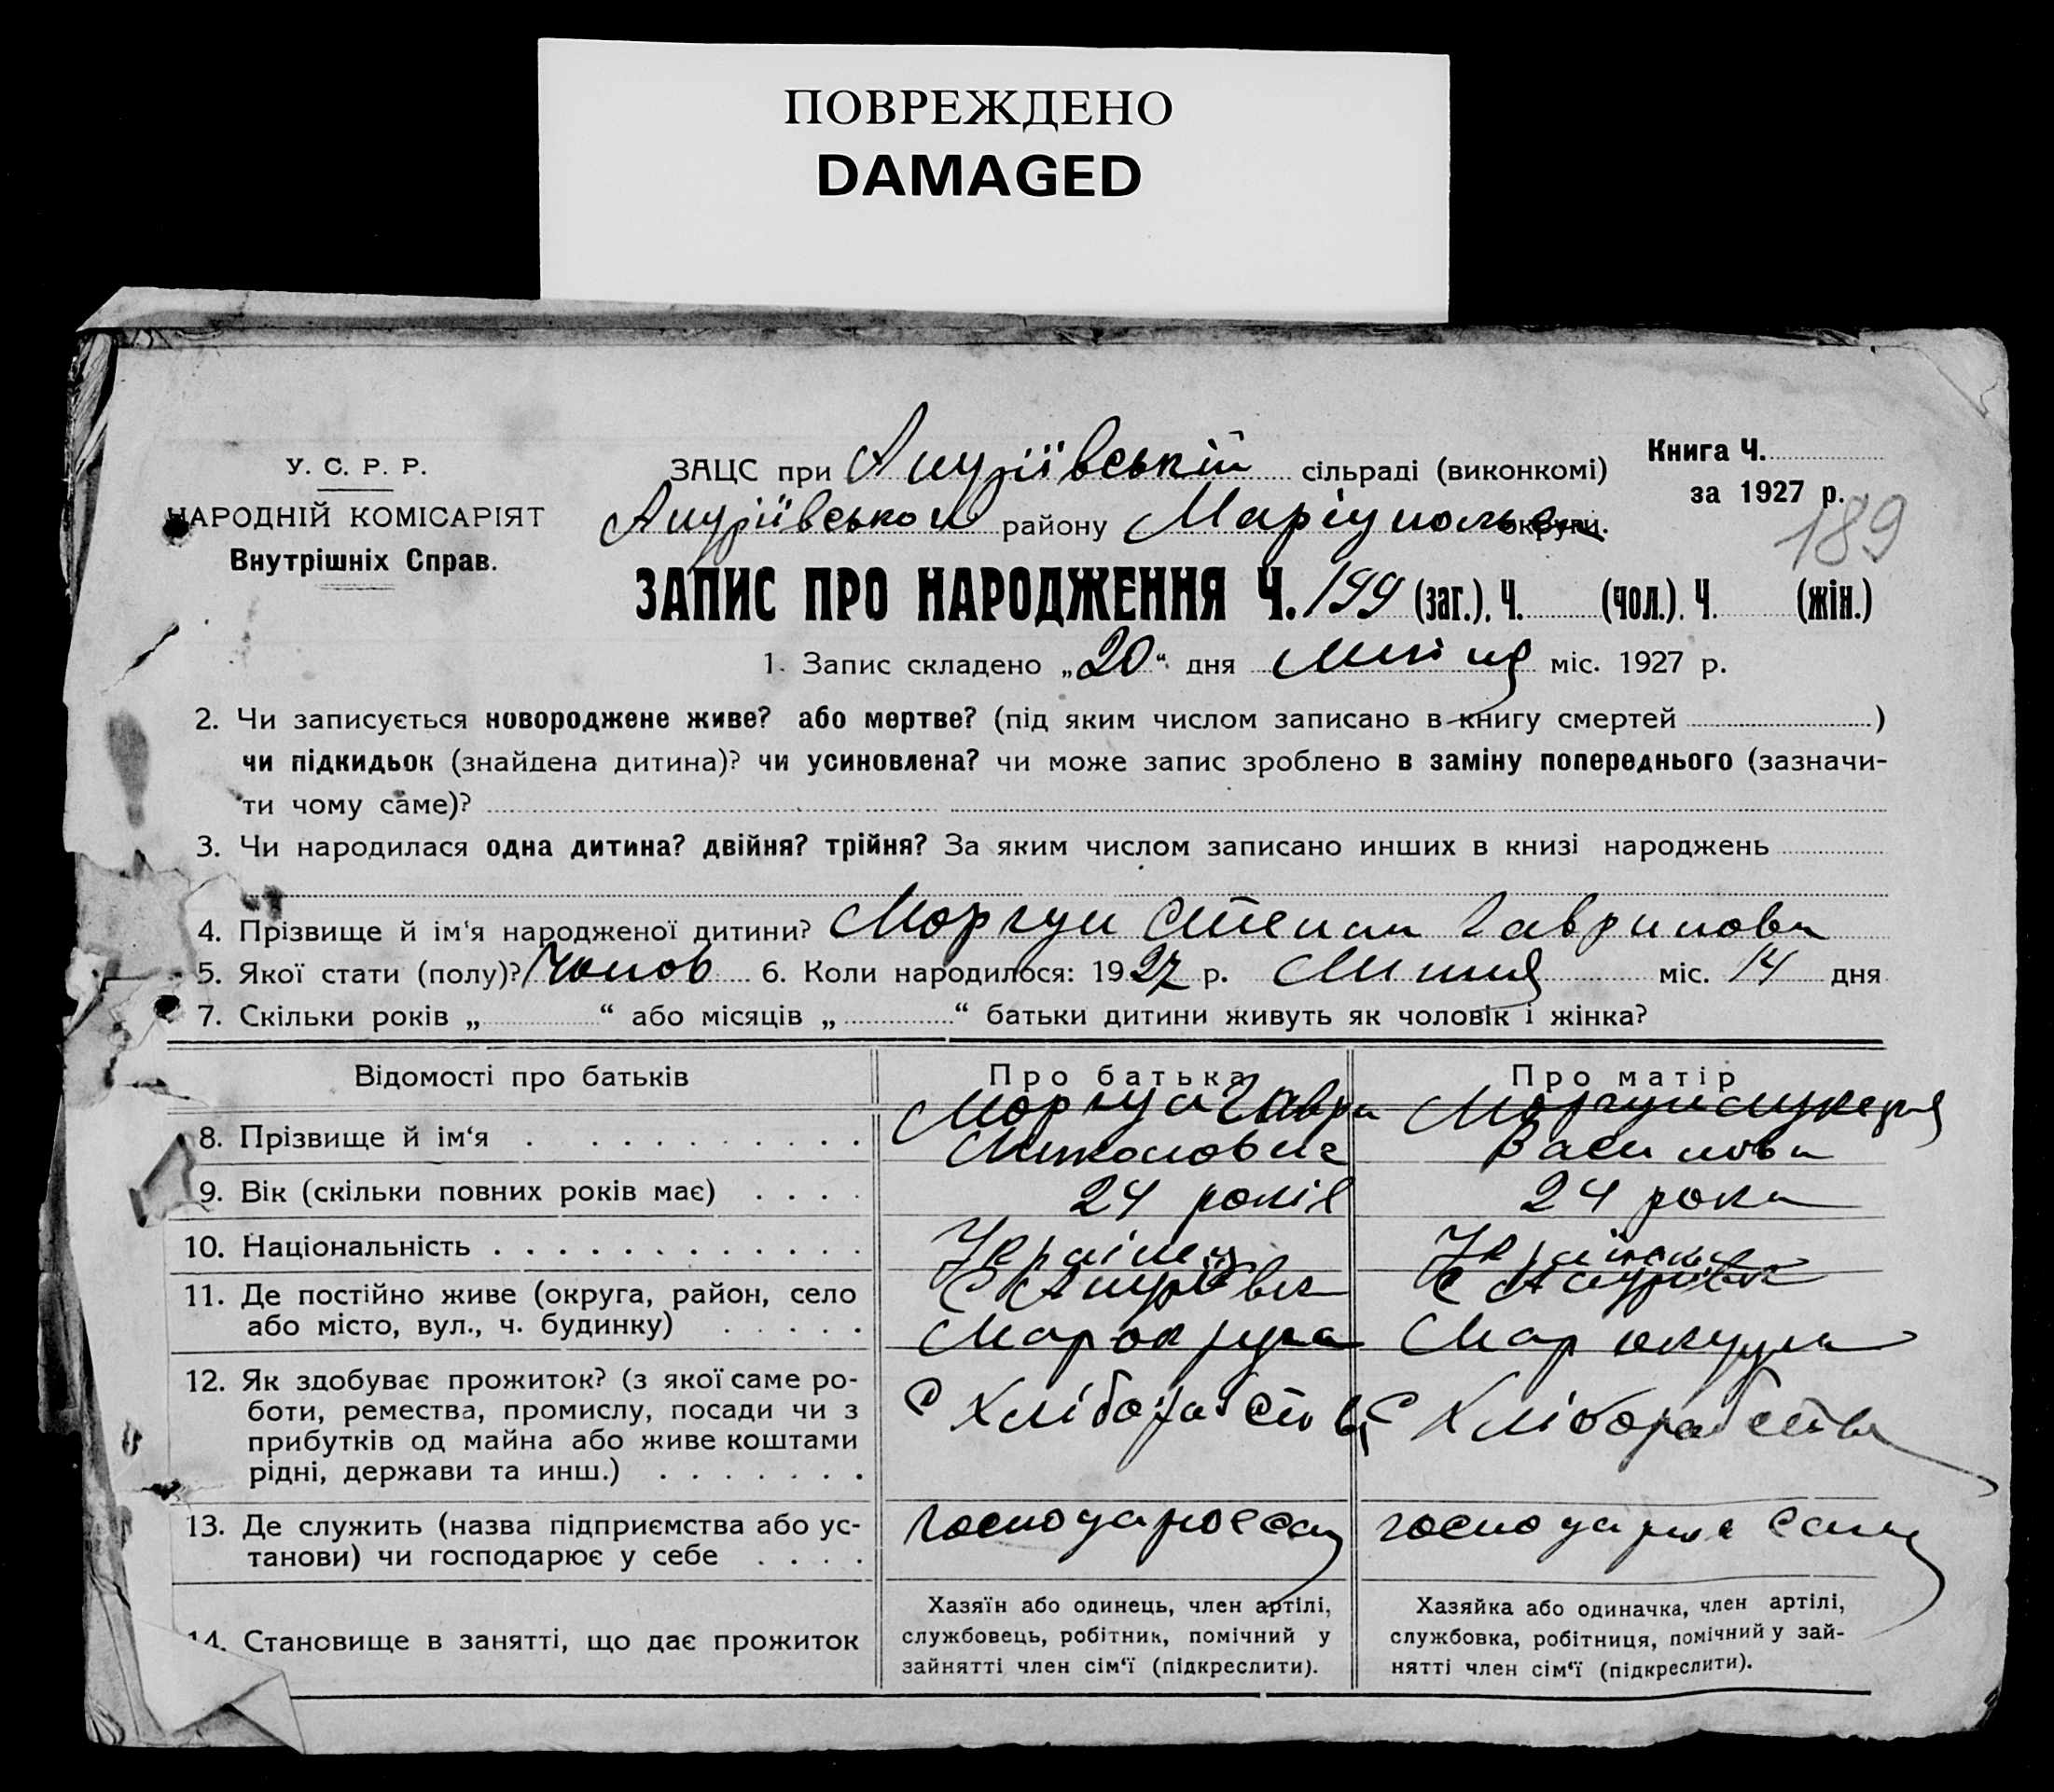 ПОВРЕЖДЕНО
DAMAGED
У. С. Р. Р.
НАРОДНІЙ КОМІСАРІЯТ
Внутрішніх Справ.
ЗАЦС при сільраді (виконкомі)
району Маріупольск округи.
Книга Ч.
за 1927 р.
189
ЗАПИС ПРО НАРОДЖЕННЯ Ч. 199 (заг.). Ч. (чол.). Ч. (жін.)
1. Запис складено „20“ дня міс. 1927 р.
2. Чи записується новороджене живе? або мертве? (під яким числом записано в книгу смертей )
чи підкидьок (знайдена дитина)? чи усиновлена? чи може запис зроблено в заміну попереднього (зазначи-
ти чому саме)?
3. Чи народилася одна дитина? двійня? трійня? За яким числом записано инших в книзі народжень
4. Прізвище й ім‘я народженої дитини? Моргун Степан Гаврилови
5. Якої стати (полу)? Чолов 6. Коли народилося: 1927 р. міс. 14 дня
7. Скільки років „ “ або місяців „ “ батьки дитини живуть як чоловік і жінка?
Відомості про батьків Про батька Про матір
8. Прізвище й ім‘я Моргун Гаври Моргун
Василови
9. Вік (скільки повних років має) 24 років 24 роки
10. Національність Українец Українка
11. Де постійно живе (округа, район, село
або місто, вул., ч. будинку) Мар округа Мар округи
12. Як здобуває прожиток? (з якої саме ро-
боти, ремества, промислу, посади чи з
прибутків од майна або живе коштами
рідні, держави та инш.)
13. Де служить (назва підприємства або ус-
танови) чи господарює у себе
14. Становище в занятті, що дає прожиток
Хазяїн або одинець, член артілі,
службовець, робітник, помічний у
зайнятті член сім‘ї (підкреслити).
Хазяйка або одиначка, член артілі,
службовка, робітниця, помічний у зай-
нятті член сім‘ї (підкреслити).